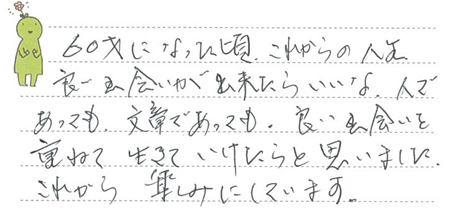 60才になった頃、これからの人生
良い出会いが出来たらいいな、人で
あっても、文章であっても、良い出会いを
重ねて生きていけたらと思いました。
これから楽しみにしています。